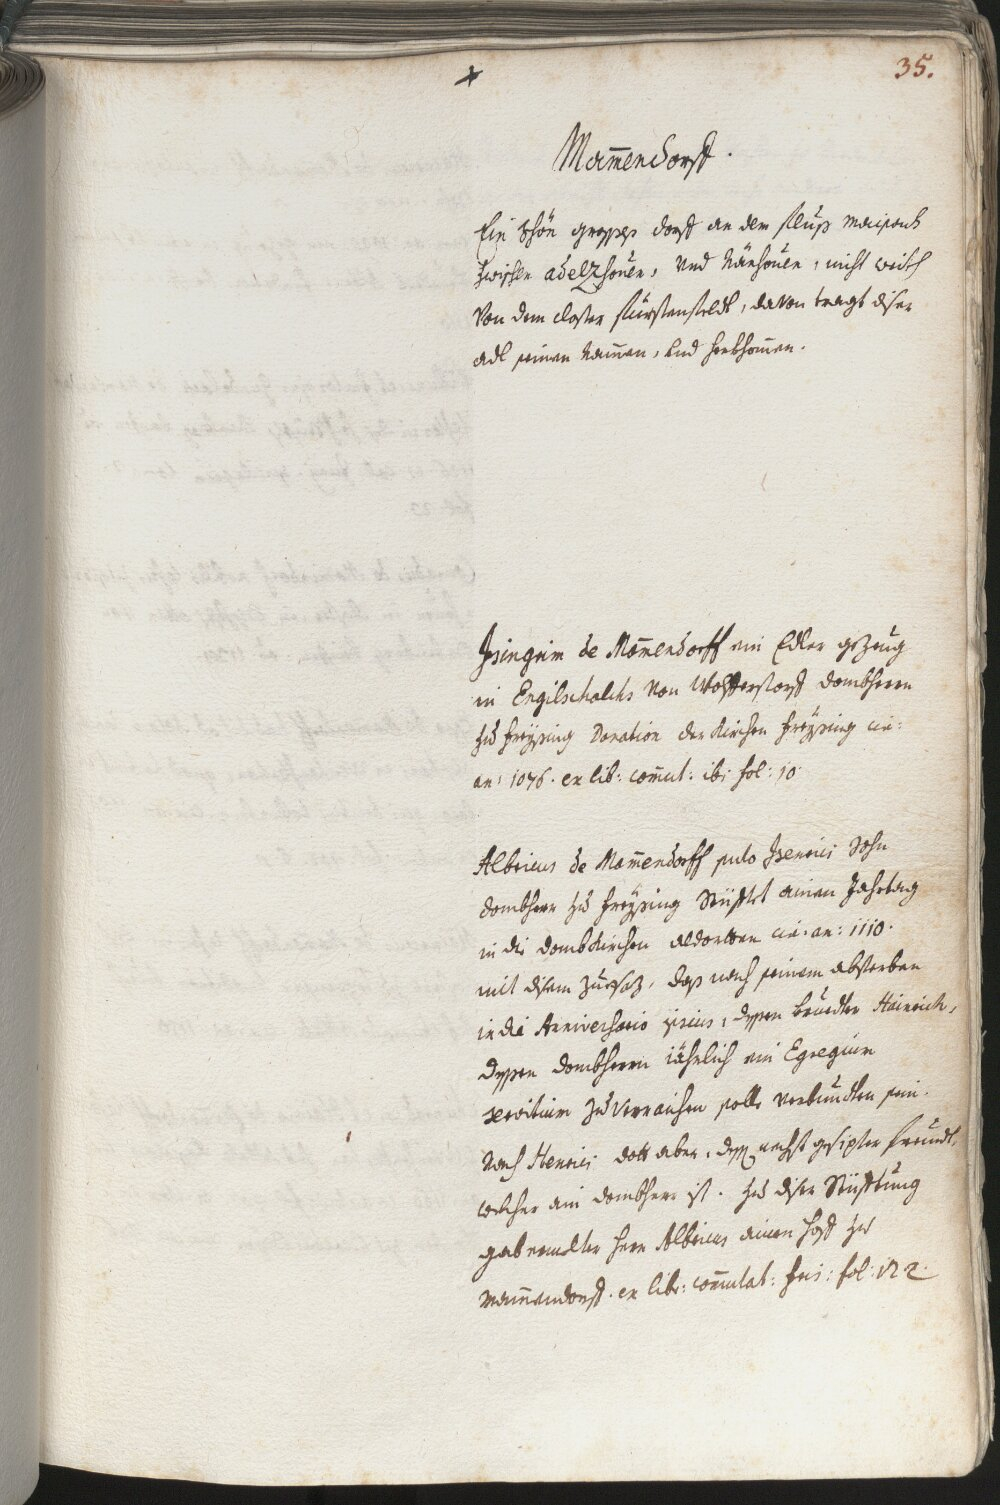 35.
Mam̄endorff.
Ein schön grosses dorff an dem fluß Maisach
zwischen adelzhouen, und Nänhouen, nicht weith
Von dem closter fürstenfeldt, davon tragt diser
adl seinen Nam̄en, und herkhom̄en.
Isingrim de Mam̄endorff ein Edler gezeug
in Engilschalchs von Wolfferstorff dombherrn
zu freÿsing Donation der kirchen freÿsing cir:
an: 1076. ex lib: com̄ut: ibi fol: 10.
Albricus de Mam̄endorff puto Isenrici Sohn
dombherr zu freÿsing Stüfftet ainen Jahrtag
in die dombkirchen aldortten cir: an: 1110.
mit disem zuesaz, daß nach seinem absterben
in die Anniversario prius, dessen bruedter Hainrich,
dessen dombherrn iährlich ein Egregium
servitium zu verraichen solle verbundten sein.
Nach Henrici dott aber, dess nechst gesipter freundt,
welcher ain dombherr ist. zu diser Stüfftung
gab ermelter herr Albricus ainen hoff zu
Mam̄endorff. ex libr: com̄utat: fris: fol: 122.